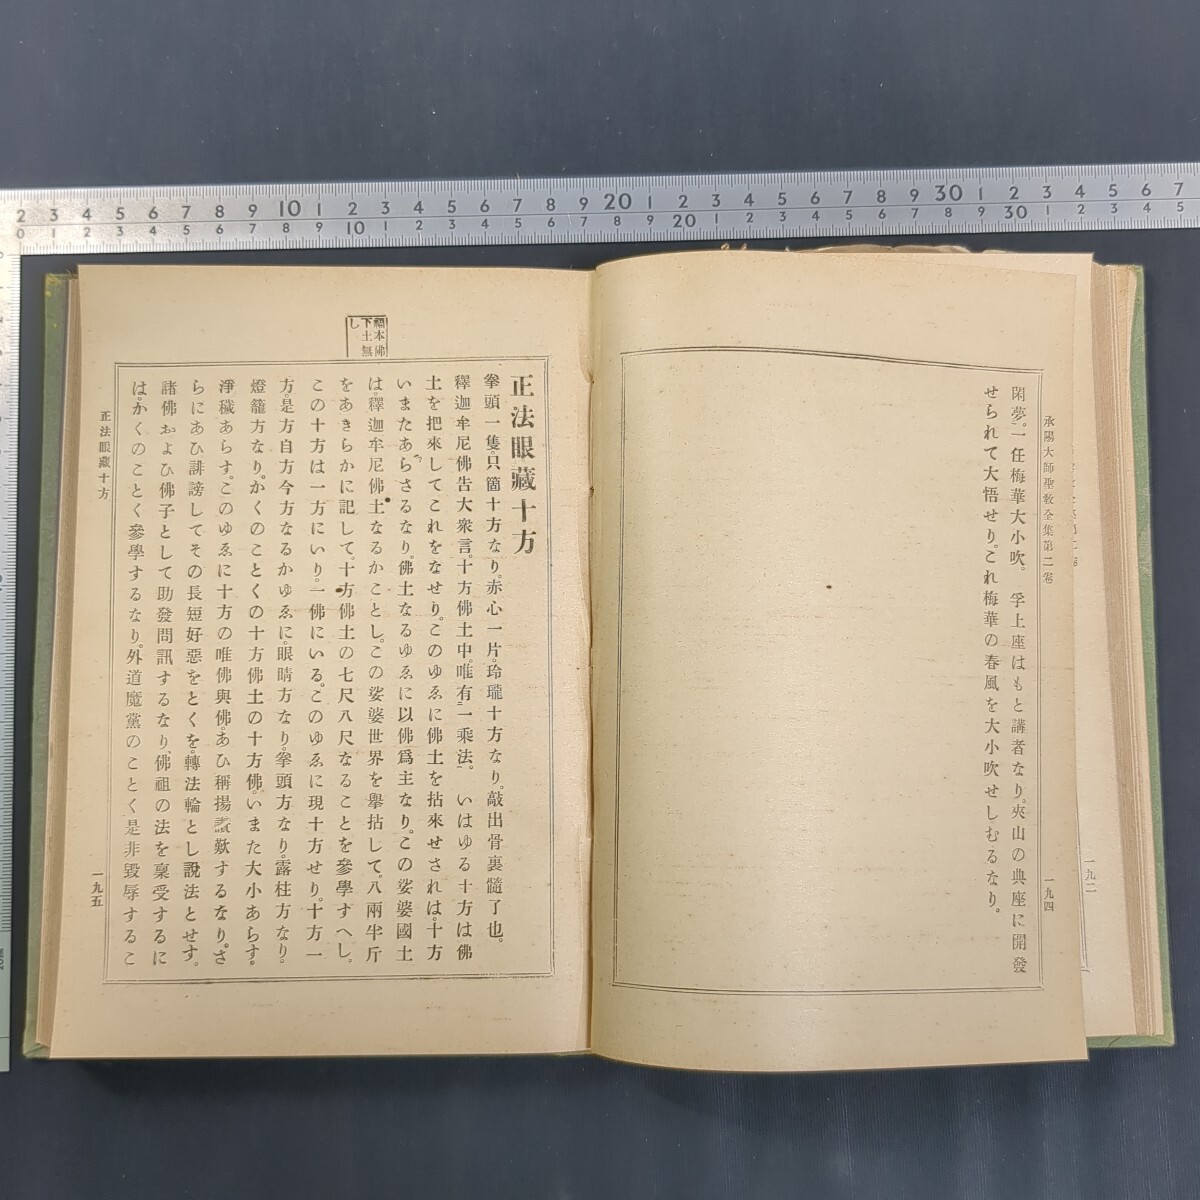 承陽大師聖敎全集第二卷
一九二
一九四
閑夢。一任梅華大小吹。 孚上座はもと講者なり。夾山の典座に開發
せられて大悟せり。これ梅華の春風を大小吹せしむるなり。
下土無
し
正法眼藏十方
拳頭一隻。只箇十方なり。赤心一片。玲瓏十方なり。敲出骨裏髓了也。
釋迦牟尼佛告大衆言。十方佛土中。唯有一乘法。 いはゆる十方は佛
土を把來してこれをなせり。このゆゑに佛土を拈來せされは。十方
いまたあらさるなり。佛土なるゆゑに以佛爲主なり。この娑婆國土
は。釋迦牟尼佛土なるかことし。この娑婆世界を擧拈して。八兩半斤
をあきらかに記して。十方佛土の七尺八尺なることを參學すへし。
この十方は一方にいり。一佛にいる。このゆゑに現十方せり。十方一
方。是方自方今方なるかゆゑに。眼睛方なり。拳頭方なり。露柱方なり。
燈籠方なり。かくのことくの十方佛土の十方佛。いまた大小あらす。
淨穢あらす。このゆゑに十方の唯佛與佛。あひ稱揚讚歎するなり。さ
らにあひ誹謗してその長短好惡をとくを。轉法輪とし說法とせす。
諸佛および佛子として助發問訊するなり、佛祖の法を稟受するに
は。かくのことく參學するなり。外道魔黨のことく是非毀辱するこ
正法眼藏十方
一九五